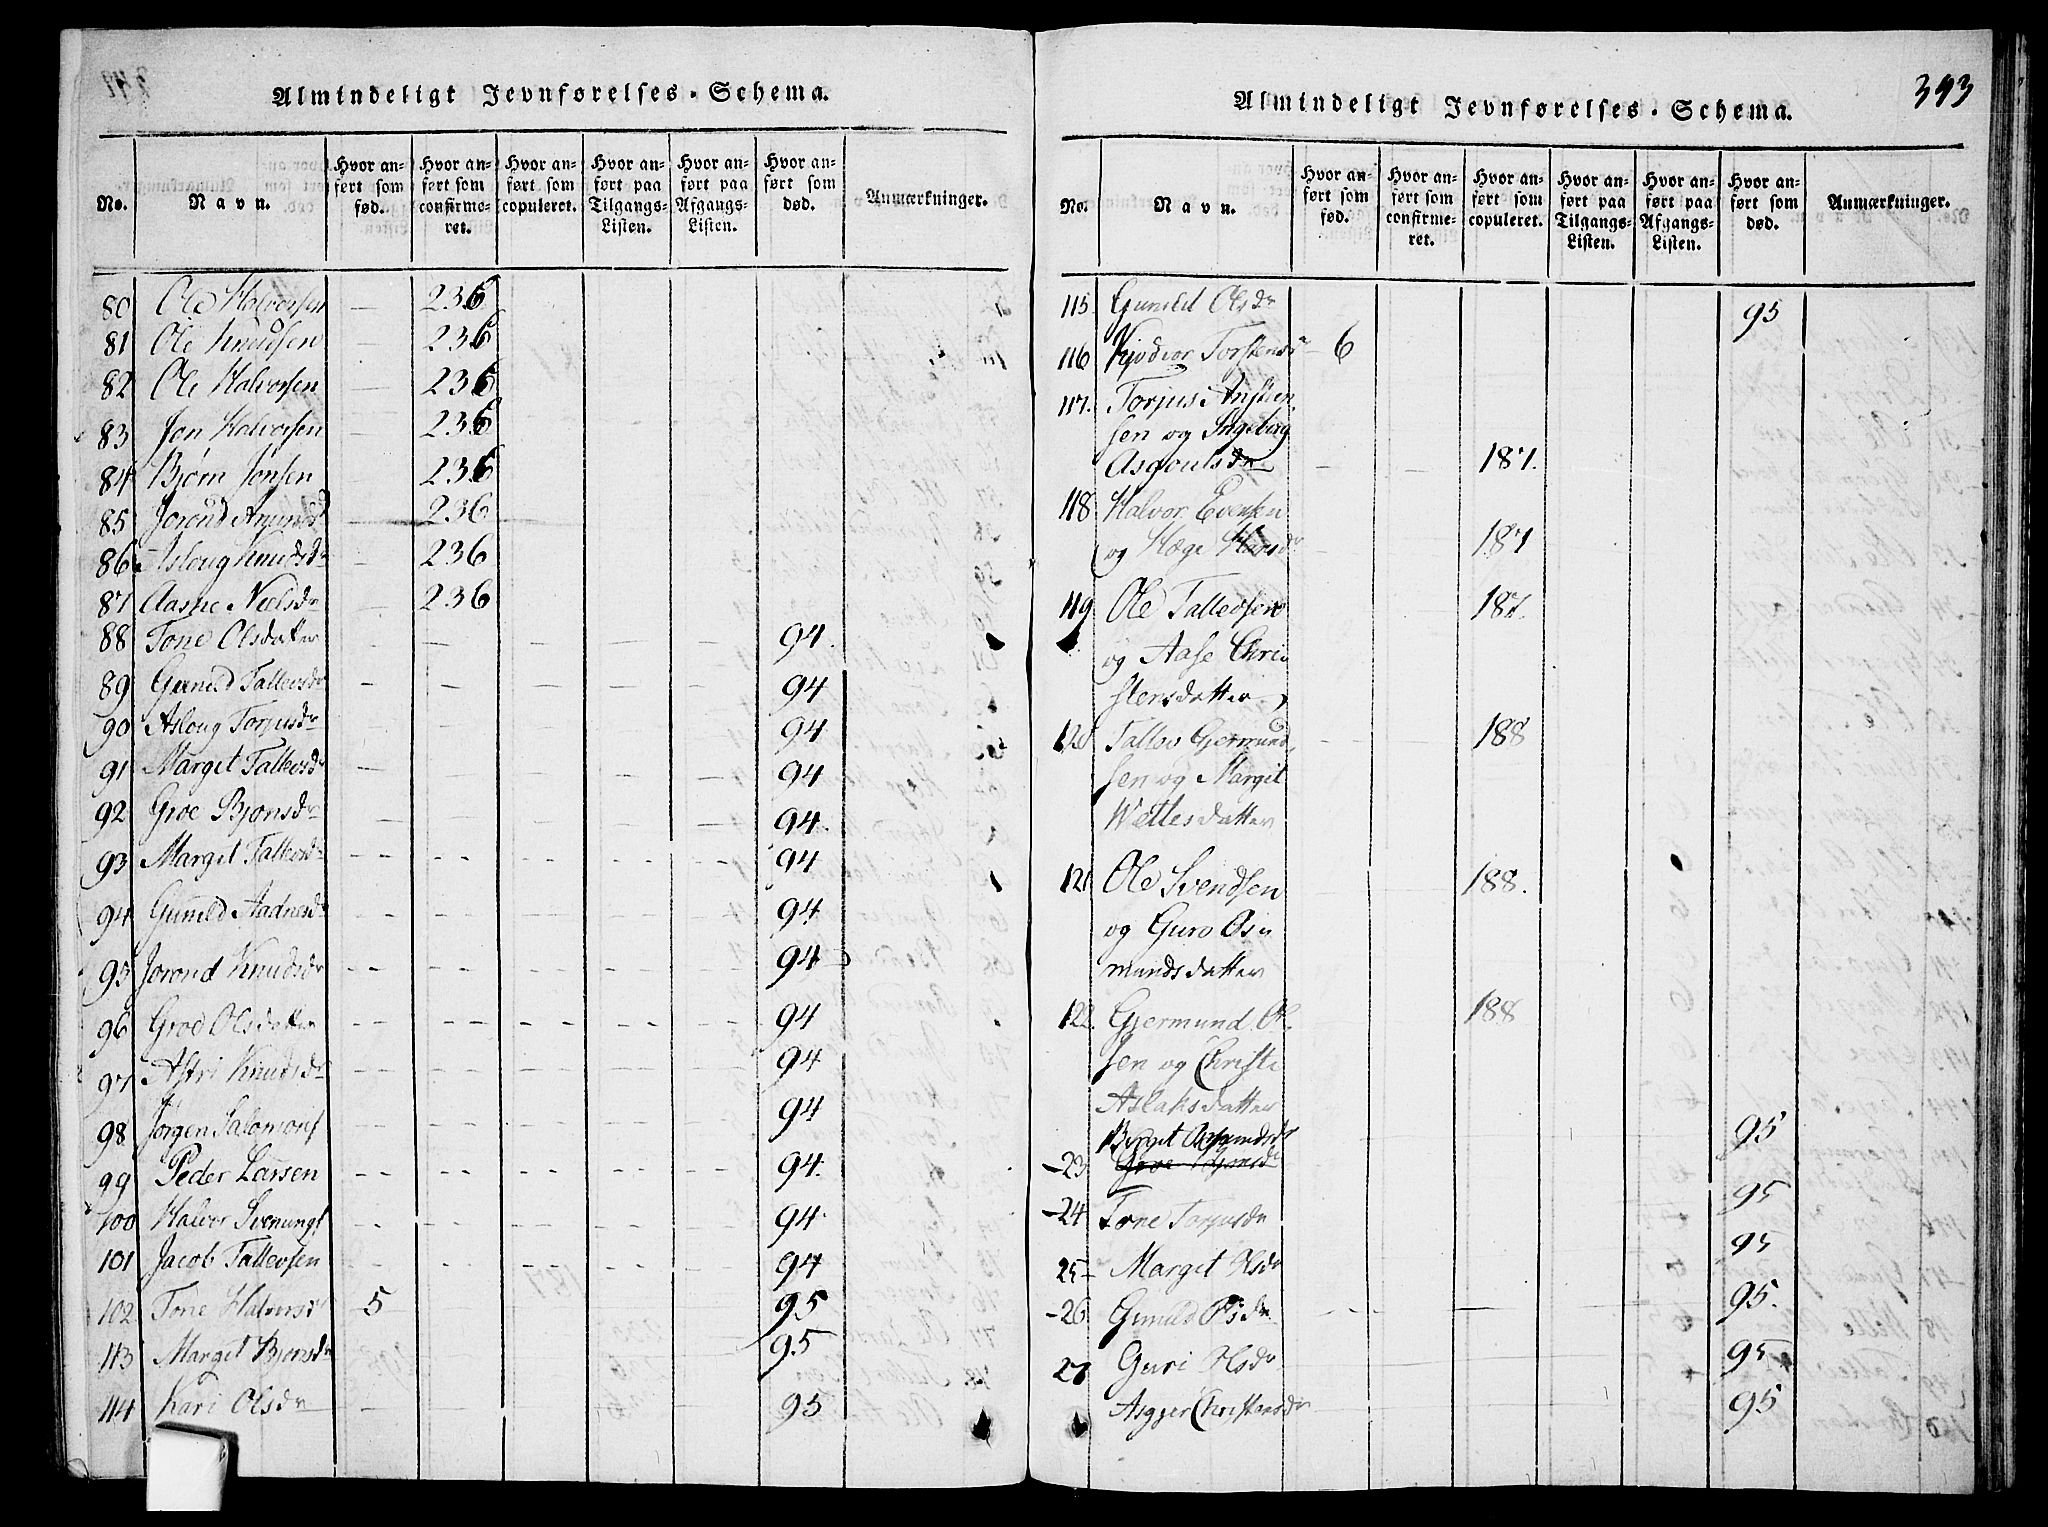 Almindeligt Jevnførelses-Schema.
No. Navn. Hvor anført som fød. Hvor anført som confirmeret. Hvor anført som copuleret. Hvor anført paa Tilgangs-Listen. Hvor anført paa Afgangs-Listen. Hvor anført som død. Anmærkninger.
80 Ole Halvorsen — 236
81 Ole Knudsen — 236
82 Ole Halvorsen — 236
83 Jon Halvorsen — 236
84 Bjørn Jonsen 236
85 Jorond — 236
86 Asloug Knudsdr — 236
87 Aasne Nielsdr — 236
88 Tone Olsdatter 94.
89 Gunild Tallevsdr 94
90 Asloug Torjusdr 94
91 Margit Tallevsdr 94
92 Groe Bjonsdr 94.
93 Margit Tallevsdr 94
94 Gunild Aadnesdr 94
95 Jorond Knudsdr 94
96 Groe Olsdatter 94
97 Astri Knudsdr 94
98 Jørgen Salomons 94
99 Peder Larsen 94.
100 Halvor Svenungs 94
101 Jacob Tallevsen 94
102 Tone Halvorsdr 5 95
113 Margit Bjonsdr 95
114 Kari Olsdr 95
343
Almindeligt Jevnførelses-Schema.
No. Navn. Hvor anført som fød. Hvor anført som confirmeret. Hvor anført som copuleret. Hvor anført paa Tilgangs-Listen. Hvor anført paa Afgangs-Listen. Hvor anført som død. Anmærkninger.
115 Gunild Olsdr 95
116 Torstensdr 6
117. Torjus Ansten
sen og Ingeborg
187.
118 Halvor Evensen
og Hæge Hansdr 187
119 Ole Tallevsen 187.
og Aase Chri
stensdatter
120 Tallev Gjermund
sen og Margit 188
Wettesdatter
121 Ole Svendsen 188.
og Guro Os
mundsdatter
122. Gjermund Ol
sen og Christi 188
Aslaksdatter
Birgit
-23 95
-24 Tone Torjusdr 95
25- Margit Olsdr 95
-26 Gunild Olsdr 95.
27 Guri Olsdr 95
Asgjer Christensdr 95